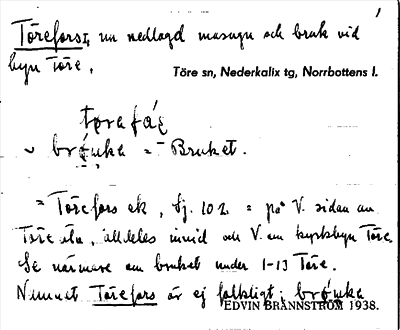 1
Törefors, nu nedlagd masugn och bruk vid
byn Töre.
Töre sn, Nederkalix tg, Norrbottens l.
brǿuka = Bruket.
= Törefors ek, Ej. 102 = på V. sidan av
Töre älv, alldeles invid och V. om kyrkbyn Töre.
Se närmare om bruket under 1-13 Töre.
Namnet Törefors är ej folkligt; brǿuka
EDVIN BRÄNNSTRÖM 1938.